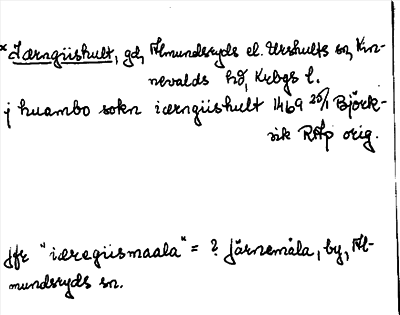 * Iærngiishult, gd, Älmundsryds el. Urshults sn, Kin-
nevalds hd, Krbgs l.
j huambo sokn iærngiishult 1469 20/1 Björk-
vik RAp orig.
Jfr "iæregiismaala" = ? Järnemåla, by, Äl-
mundsryds sn.